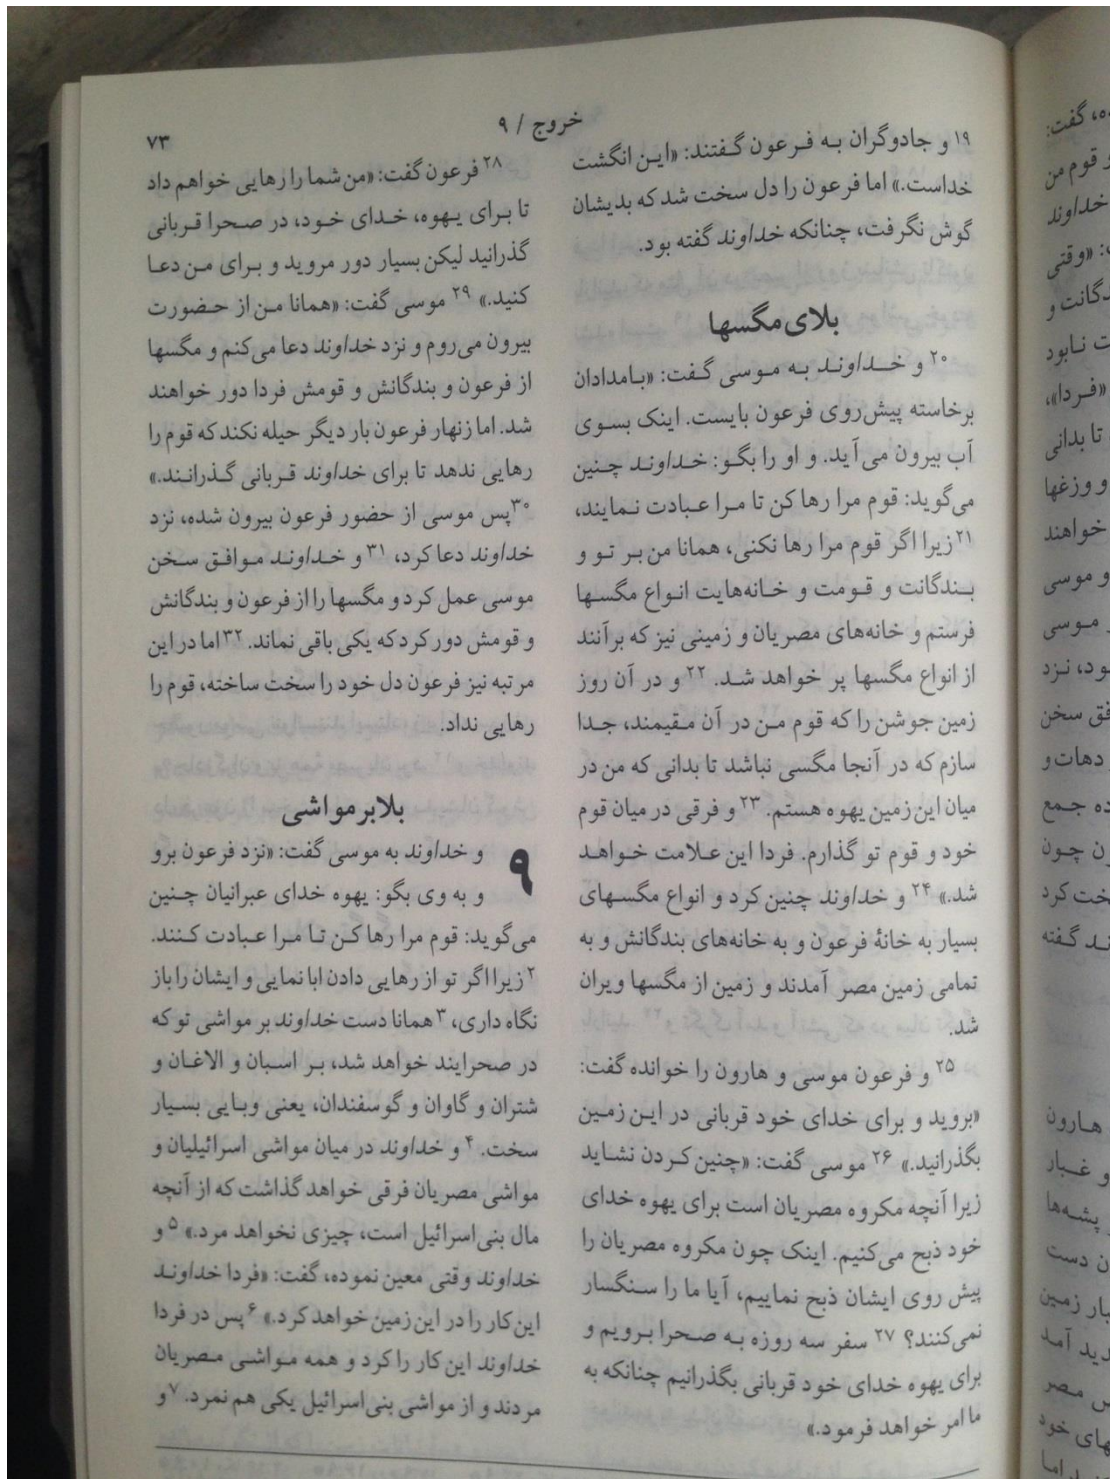 خروج / ۹
۷۳
۱۹ و جادوگران به فرعون گفتند: «این انگشت
خداست.» اما فرعون را دل سخت شد که بدیشان
گوش نگرفت، چنانکه خداوند گفته بود.
بلای مگسها
۲۰ و خداوند به موسی گفت: «بامدادان
برخاسته پیش‌روی فرعون بایست. اینک بسوی
آب بیرون می‌آید. و او را بگو: خداوند چنین
می‌گوید: قوم مرا رها کن تا مرا عبادت نمایند،
۲۱ زیرا اگر قوم مرا رها نکنی، همانا من بر تو و
بندگانت و قومت و خانه‌هایت انواع مگسها
فرستم و خانه‌های مصریان و زمینی نیز که برآنند
از انواع مگسها پر خواهد شد. ۲۲ و در آن روز
زمین جوشن را که قوم من در آن مقیمند، جدا
سازم که در آنجا مگسی نباشد تا بدانی که من در
میان این زمین یهوه هستم. ۲۳ و فرقی در میان قوم
خود و قوم تو گذارم. فردا این علامت خواهد
شد.» ۲۴ و خداوند چنین کرد و انواع مگسهای
بسیار به خانهٔ فرعون و به خانه‌های بندگانش و به
تمامی زمین مصر آمدند و زمین از مگسها ویران
شد.
۲۵ و فرعون موسی و هارون را خوانده گفت:
«بروید و برای خدای خود قربانی در این زمین
بگذرانید.» ۲۶ موسی گفت: «چنین کردن نشاید
زیرا آنچه مکروه مصریان است برای یهوه خدای
خود ذبح می‌کنیم. اینک چون مکروه مصریان را
پیش روی ایشان ذبح نماییم، آیا ما را سنگسار
نمی‌کنند؟ ۲۷ سفر سه روزه به صحرا برویم و
برای یهوه خدای خود قربانی بگذرانیم چنانکه به
ما امر خواهد فرمود.»
۲۸ فرعون گفت: «من شما را رهایی خواهم داد
تا برای یهوه، خدای خود، در صحرا قربانی
گذرانید لیکن بسیار دور مروید و برای من دعا
کنید.» ۲۹ موسی گفت: «همانا من از حضورت
بیرون می‌روم و نزد خداوند دعا می‌کنم و مگسها
از فرعون و بندگانش و قومش فردا دور خواهند
شد. اما زنهار فرعون بار دیگر حیله نکند که قوم را
رهایی ندهد تا برای خداوند قربانی گذرانند.»
۳۰ پس موسی از حضور فرعون بیرون شده، نزد
خداوند دعا کرد، ۳۱ و خداوند موافق سخن
موسی عمل کرد و مگسها را از فرعون و بندگانش
و قومش دور کرد که یکی باقی نماند. ۳۲ اما در این
مرتبه نیز فرعون دل خود را سخت ساخته، قوم را
رهایی نداد.
بلا بر مواشی
۹ و خداوند به موسی گفت: «نزد فرعون برو
و به وی بگو: یهوه خدای عبرانیان چنین
می‌گوید: قوم مرا رها کن تا مرا عبادت کنند.
۲ زیرا اگر تو از رهایی دادن ابا نمایی و ایشان را باز
نگاه داری، ۳ همانا دست خداوند بر مواشی تو که
در صحرایند خواهد شد، بر اسبان و الاغان و
شتران و گاوان و گوسفندان، یعنی وبایی بسیار
سخت. ۴ و خداوند در میان مواشی اسرائیلیان و
مواشی مصریان فرقی خواهد گذاشت که از آنچه
مال بنی‌اسرائیل است، چیزی نخواهد مرد.» ۵ و
خداوند وقتی معین نموده، گفت: «فردا خداوند
این کار را در این زمین خواهد کرد.» ۶ پس در فردا
خداوند این کار را کرد و همه مواشی مصریان
مردند و از مواشی بنی‌اسرائیل یکی هم نمرد. ۷ و
گفت:
قوم من
خداوند
«وقتی
و
نابود
«فردا»،
تا بدانی
و وزغها
خواهند
و موسی
موسی
نزد
سخن
دهات و
جمع
چون
کرد
گفته
هارون
و غبار
پشه‌ها
دست
زمین
آمد
مصر
خود
اما